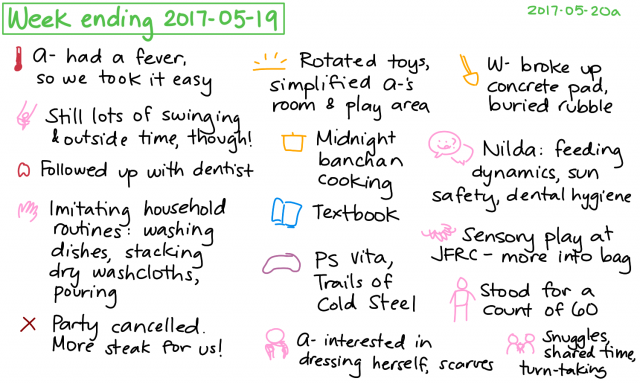 Week ending 2017-05-19
2017-05-20a
A- had a fever,
so we took it easy
Still lots of swinging
& outside time, though!
Followed up with dentist
Imitating household
routines: washing
dishes, stacking
dry washcloths,
pouring
Party cancelled.
More steak for us!
Rotated toys,
simplified A-'s
room & play area
Midnight
banchan
cooking
Textbook
PS Vita,
Trails of
Cold Steel
A- interested in
dressing herself, scarves
W- broke up
concrete pad,
buried rubble
Nilda: feeding
dynamics, sun
safety, dental hygiene
Sensory play at
JFRC - more into bag
Stood for a
count of 60
Snuggles,
shared time,
turn-taking